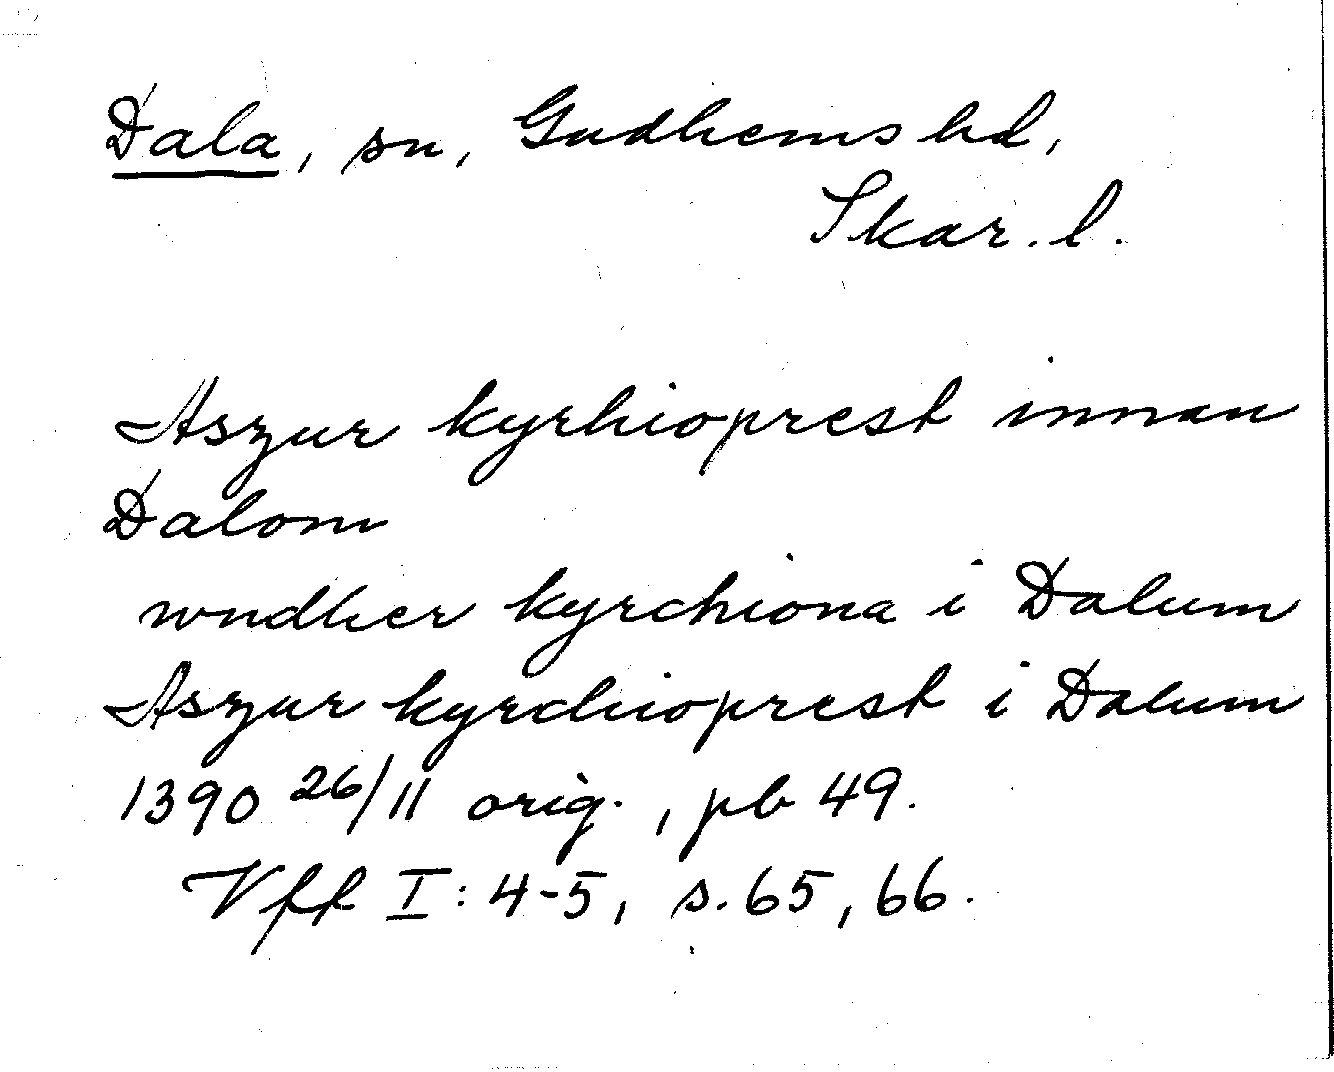 Dala, sn, Gudhems hd,
Skar. l.
Aszur kyrhioprest innan
Dalom
wndher kyrchiona i Dalum
Aszur kyrchioprest i Dalum
1390 26/11 orig., pb 49.
Vff I: 4-5, s. 65, 66.